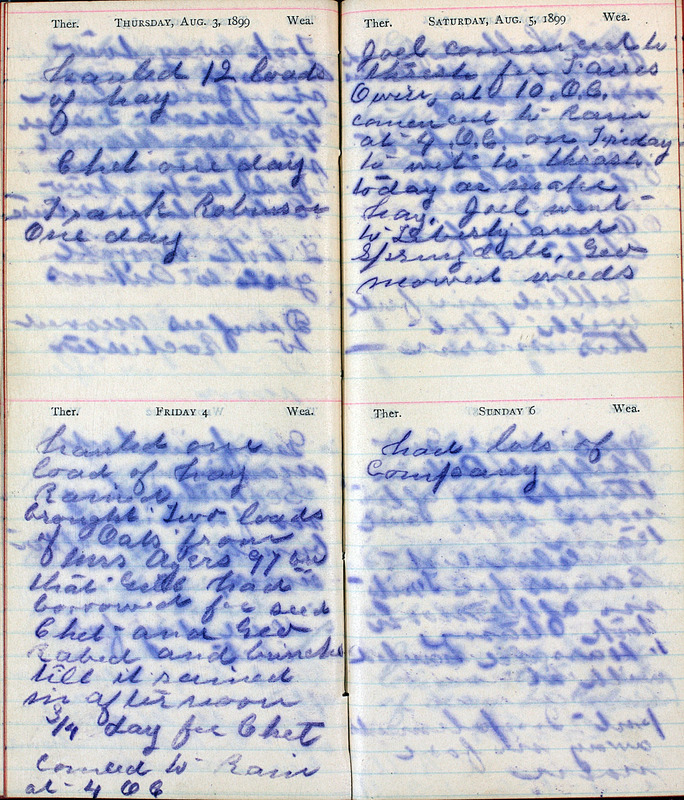 Ther. THURSDAY, AUG. 3, 1899 Wea.
hauled 12 loads
of hay
Chet one day
Frank Robinson
One day
Ther. FRIDAY 4 Wea.
hauled one
load of hay
Rained
brought Two loads
of Oats from
Ayers 97 bu
that had
borrowed for seed
Chet and Geo
Rabed and bunche
till it rained
in afternoon
3/4 day for Chet
Comced to Rain
at 4 OC
Ther. SATURDAY, AUG. 5, 1899 Wea.
Joel comenced to
thrash for
at 10. OC.
comenced to Rain
at 4 O.C. on Friday
to wet to thrash
today or make
hay, Joel went
to Liberty and
Springdale, Geo
mowed weeds
Ther. SUNDAY 6 Wea.
had lots of
Company